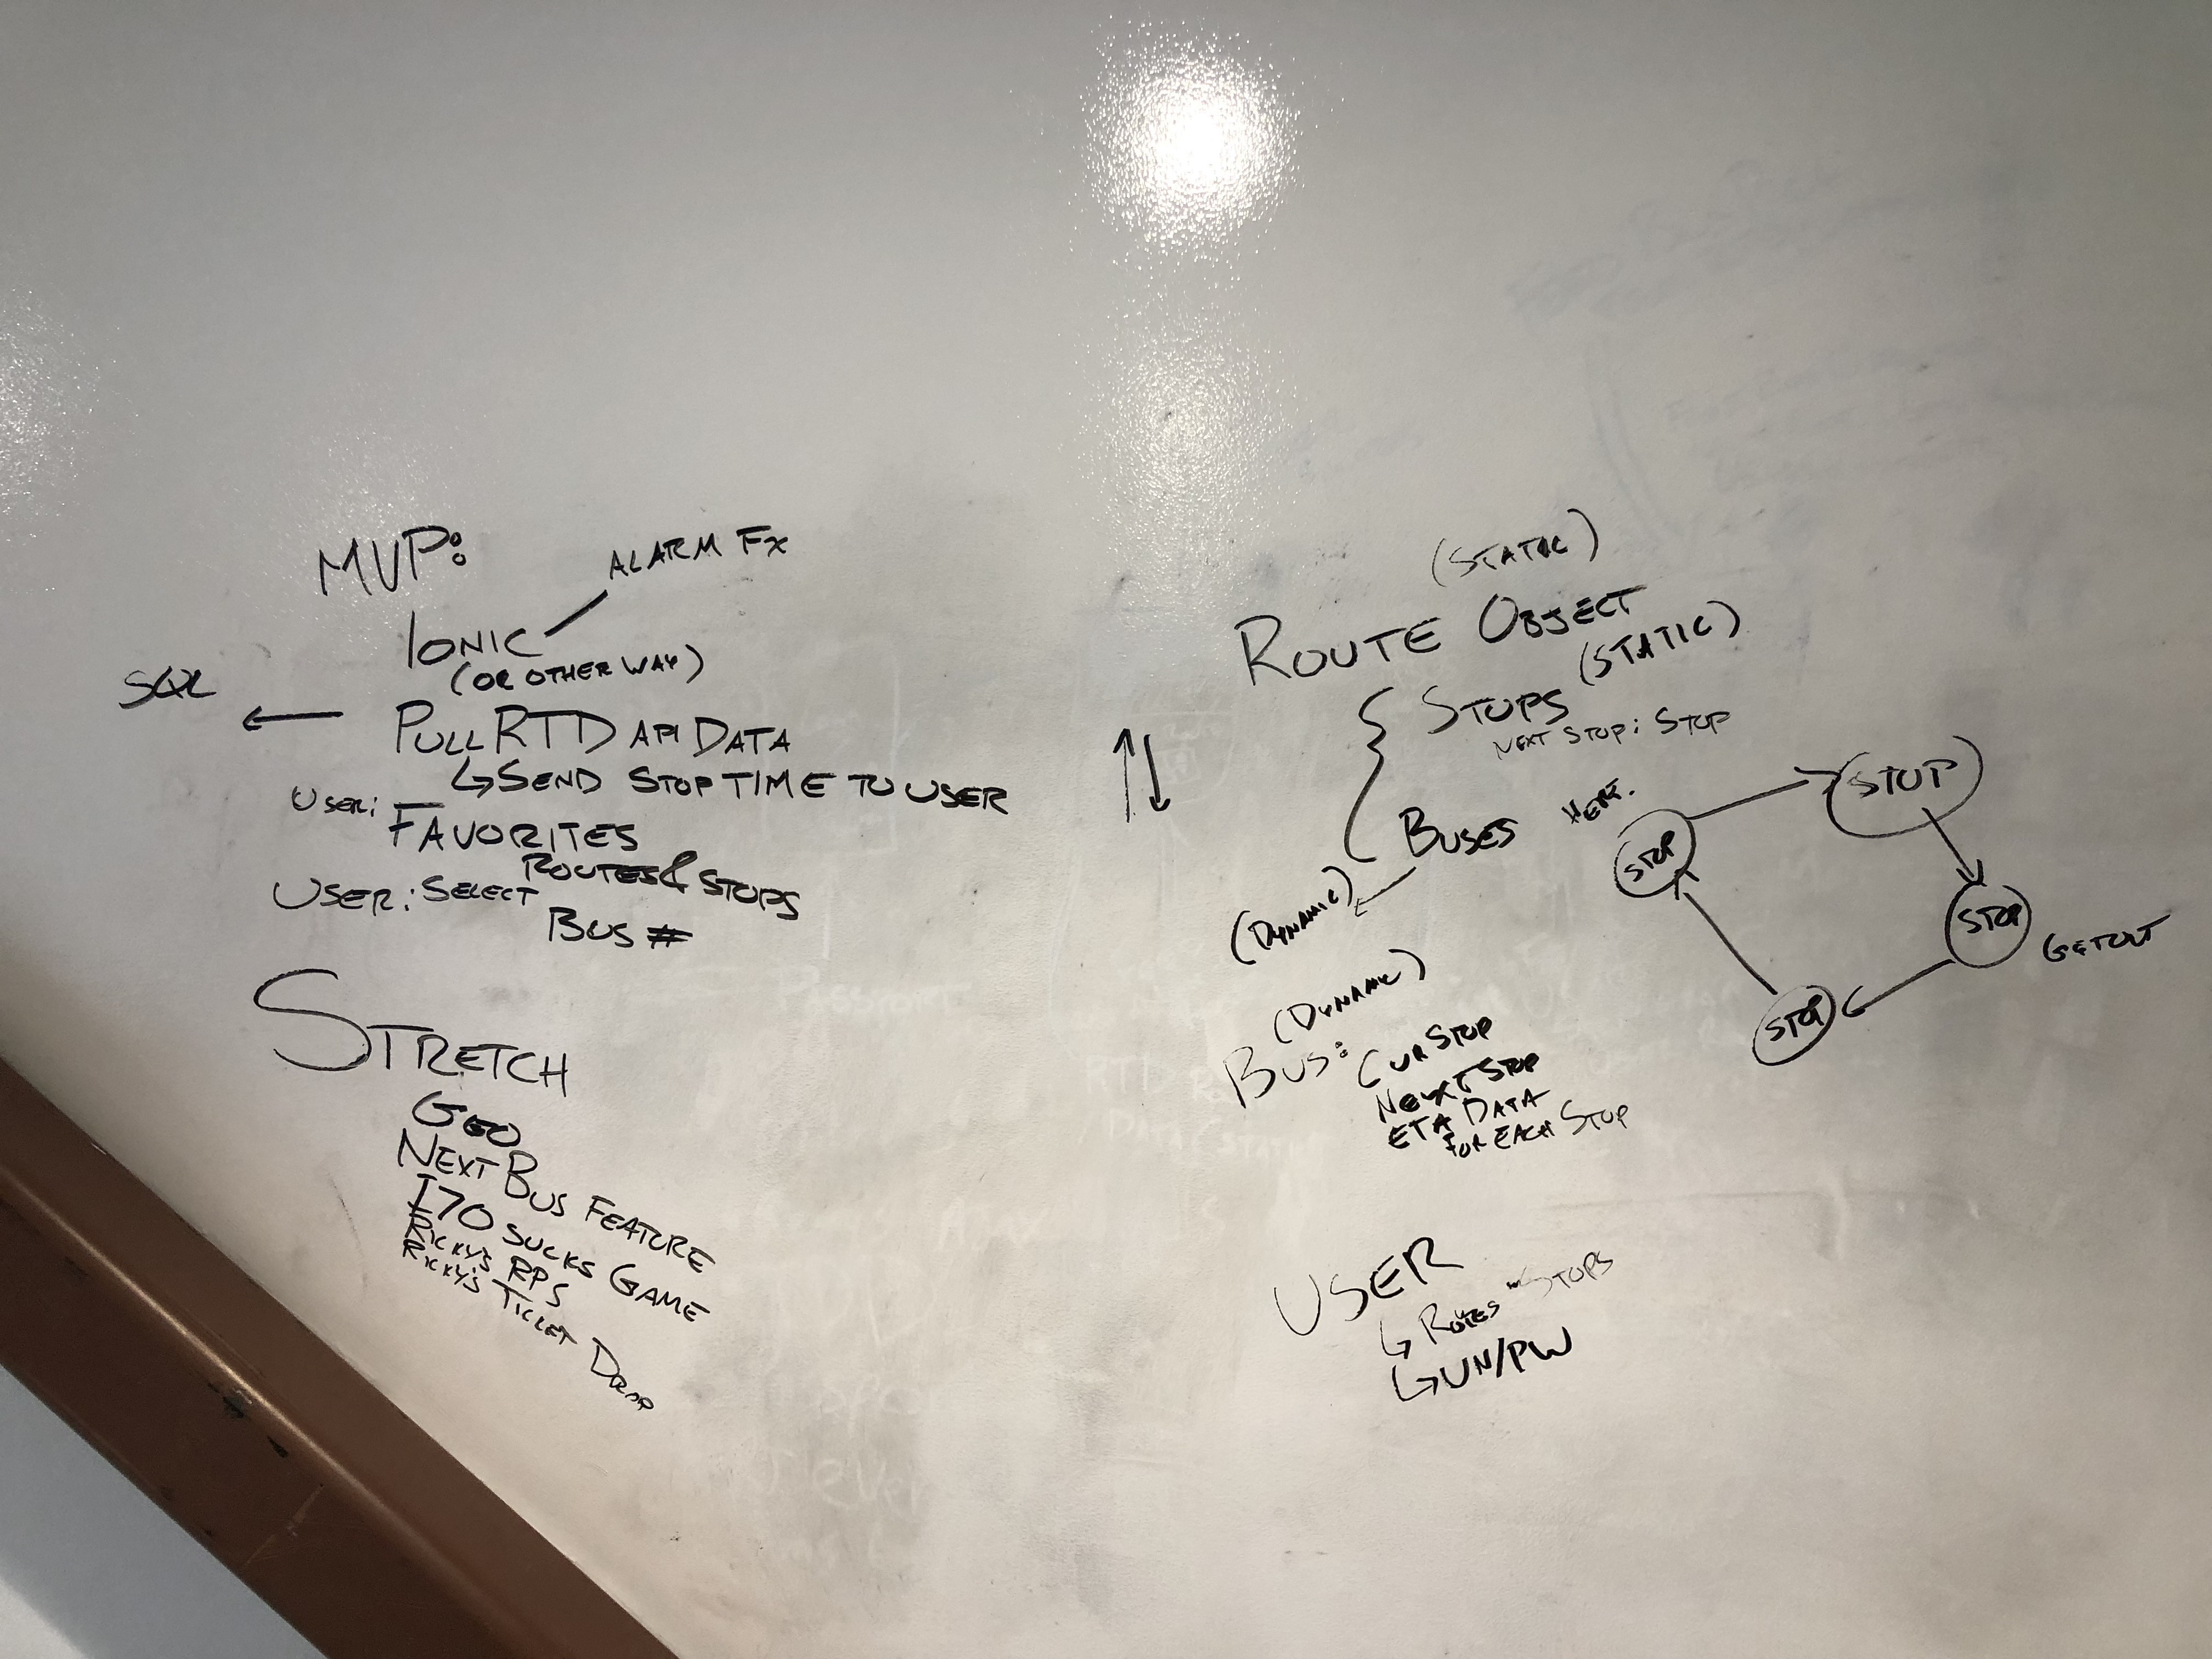 MVP:
ALARM Fx
IONIC
(OR OTHER WAY)
SQL
PULL RTD API DATA
SEND STOP TIME TO USER
USER: FAVORITES
ROUTES & STOPS
USER: SELECT
BUS #
STRETCH
GEO
NEXT BUS FEATURE
I70 SUCKS GAME
RICKY'S RPS
RICKY'S TICKET DROP
(STATIC)
ROUTE OBJECT
(STATIC)
STOPS
NEXT STOP: STOP
BUSES
(DYNAMIC)
STOP
STOP
STOP
GET OUT
STOP
HERE.
(DYNAMIC)
BUS: CUR STOP
NEXT STOP
ETA DATA
FOR EACH STOP
USER
ROUTES STOPS
UN/PW
PASSPORT
RTD